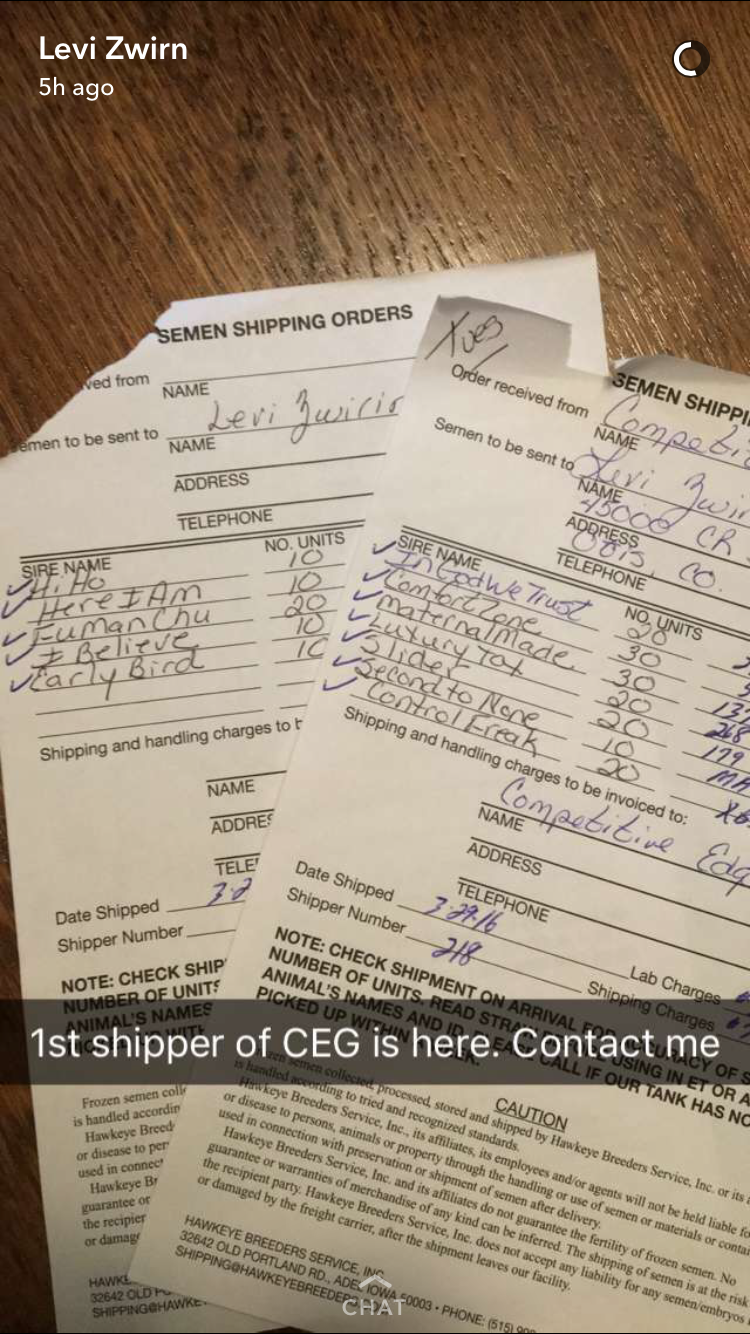 Levi Zwirn
5h ago
SEMEN SHIPPING ORDERS
ved from
NAME
emen to be sent to
Levi
NAME
ADDRESS
TELEPHONE
SIRE NAME NO. UNITS
Hi Ho 10
Here I Am 10
Fuman Chu 20
I Believe 10
Early Bird 10
Shipping and handling charges to b
NAME
ADDRES
TELE
Date Shipped 3-2
Shipper Number
NOTE: CHECK SHIP
NUMBER OF UNITS
ANIMAL'S NAMES
Frozen semen coll
is handled accordin
Hawkeye Breed
or disease to per
used in connect
Hawkeye Br
guarantee or
the recipien
or damag
HAWKE
32642 OLD PO
SHIPPING@HAWKE
Tues
SEMEN SHIPPI
Order received from
Competi
NAME
Semen to be sent to
Levi Zwir
NAME
45000 CR
ADDRESS
Otis, CO.
TELEPHONE
SIRE NAME NO. UNITS
In God We Trust 20
Comfort Zone 30
Maternal Made 30
Luxury Tax 20
Slider 20
Second to None 10
Control Freak 20
Shipping and handling charges to be invoiced to:
Competitive Edg
NAME
ADDRESS
TELEPHONE
Date Shipped 3-29-16
Shipper Number 218
Lab Charges
Shipping Charges
NOTE: CHECK SHIPMENT ON ARRIVAL FOR ACCURACY OF S
NUMBER OF UNITS. READ STRAW BEFORE USING IN ET OR A
ANIMAL'S NAMES AND ID. PLEASE CALL IF OUR TANK HAS NO
PICKED UP WITHIN
1st shipper of CEG is here. Contact me
CAUTION
Frozen semen collected, processed, stored and shipped by Hawkeye Breeders Service, Inc. or its
is handled according to tried and recognized standards.
Hawkeye Breeders Service, Inc., its affiliates, its employees and/or agents will not be held liable fo
or disease to persons, animals or property through the handling or use of semen or materials or conta
used in connection with preservation or shipment of semen after delivery.
Hawkeye Breeders Service, Inc. and its affiliates do not guarantee the fertility of frozen semen. No
guarantee or warranties of merchandise of any kind can be inferred. The shipping of semen is at the risk
the recipient party. Hawkeye Breeders Service, Inc. does not accept any liability for any semen/embryos
or damaged by the freight carrier, after the shipment leaves our facility.
HAWKEYE BREEDERS SERVICE, INC.
32642 OLD PORTLAND RD., ADEL IOWA 50003 • PHONE: (515)
SHIPPING@HAWKEYEBREEDER
CHAT